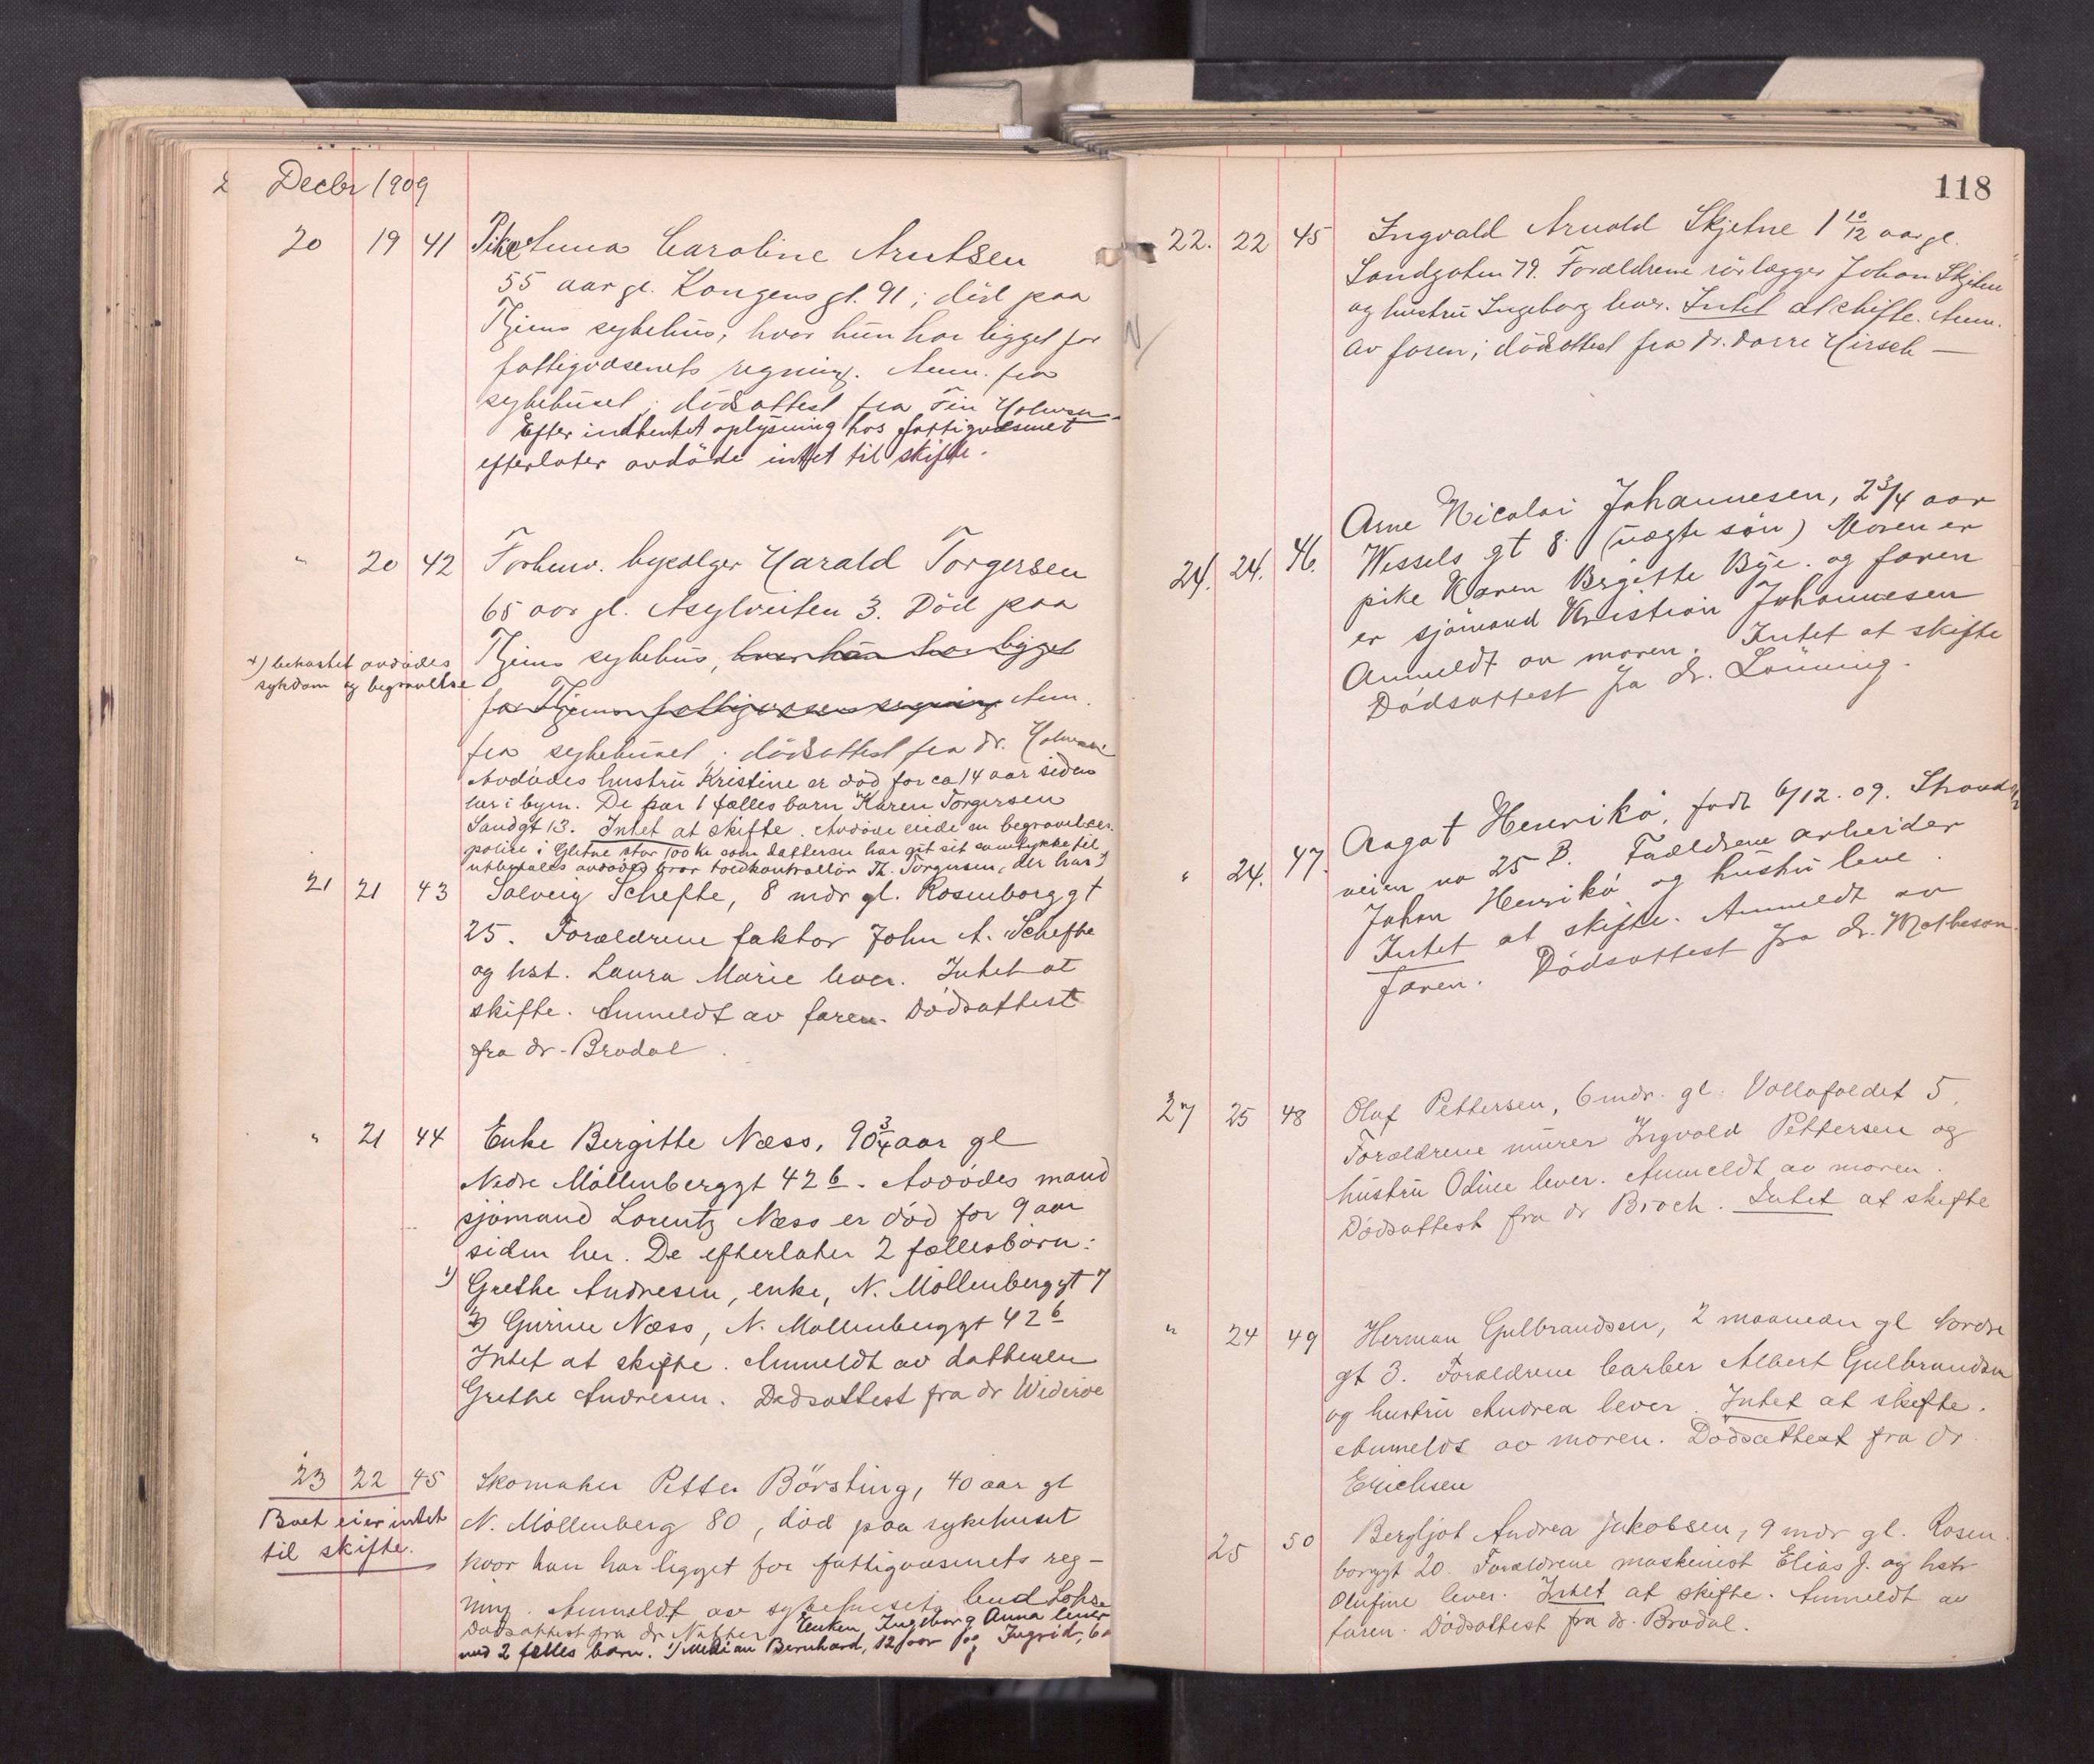 Decbr 1909
20 19 41 Pike Anna Caroline Arntsen
55 aar gl. Kongens gt. 91; död paa
Tjems sykehus, hvor hun har ligget for
fattigvæsenets regning. Anm. fra
sykehuset; dödsattest fra
Efter indhentet oplysning hos fattigvæsenet
efterlater avdöde intet til skifte.
" 20 42 Forhenv. Harald Torgersen
65 aar gl. Asylveiten 3. Död paa
Tjems sykehus, hvor han har ligget
for Tjems fattigvæsens regning Anm.
fra sykehuset; dödsattest fra dr.
Avdödes hustru Kristine er död for ca 14 aar siden
her i byen. De har 1 fælles barn Karen Torgersen
Sandgt 13. Intet at skifte. Avdöde eiede en begravelses-
police i Gletne stor 100 kr som datteren har git sit samtykke til
utbetales avdödes bror toldkontrollör Th. Torgersen, der har x)
x) bekostet avdödes
sykdom og begravelse
21 21 43 Solveig Schefte, 8 mdr gl. Rosenborg gt
25. Forældrene faktor John A. Schefte
og hst. Laura Marie lever. Intet at
skifte. Anmeldt av faren. Dödsattest
fra dr. Brodal.
" 21 44 Enke Bergitte Næss, 90 3/4 aar gl
Nedre Möllenberggt 42 b. Avdödes mand
sjömand Lorentz Næss er död for 9 aar
siden her. De efterlater 2 fællesbörn:
1) Grethe Andresen, enke, N. Möllenberggt 7
2) Gurine Næss, N. Möllenberggt 42 b
Intet at skifte. Anmeldt av datteren
Grethe Andresen. Dødsattest fra dr Wideröe
23 22 45 Skomaker Petter Börsting, 40 aar gl
N. Möllenberg 80, död paa sykehuset
hvor han har ligget for fattigvæsenets reg-
ning. Anmeldt av sykehusets bud
Dødsattest fra dr Enken, Ingeborg Anna lever
med 2 fælles barn. 1) Bernhard, 12 aar og Ingrid, 6
Boet eier intet
til skifte.
118
22. 22 45 Ingvald Arnold Skjetne 1 10/12 aar gl.
Sandgaten 79. Forældrene rörlægger Johan Skjetne
og hustru Ingeborg lever. Intet at skifte. Anm.
av faren; dödsattest fra Dr. Dorre Hirsch —
24. 24. 46. Arne Nicolai Johannesen, 2 3/4 aar
Wessels gt 8. (uægte sön) Moren er
pike Karen Birgitte Bye. og faren
er sjömand Kristian Johannesen
Anmeldt av moren. Intet at skifte
Dödsattest fra dr. Lönning.
" 24. 47. Aagat Henrikö, född 6/12. 09. Strand
veien no 25 B. Forældrene arbeider
Johan Henrikö og hustru leve.
Intet at skifte. Anmeldt av
faren. Dödsattest fra dr. Matheson.
27 25 48 Olaf Pettersen, 6 mdr. gl. Vollafaldet 5.
Forældrene murer Ingvald Pettersen og
hustru Odine lever. Anmeldt av moren.
Dödsattest fra dr Broch. Intet at skifte
" 24 49 Herman Gulbrandsen, 2 maaneder gl Nordre
gt 3. Forældrene barber Albert Gulbrandsen
og hustru Andrea lever. Intet at skifte.
Anmeldt av moren. Dødsattest fra dr.
Erichsen
25 50 Bergljot Andrea Jakobsen, 9 mdr gl. Rosen
borggt 20. Forældrene maskinist Elias J. og hstr
Olufine lever. Intet at skifte. Anmeldt av
faren. Dödsattest fra dr. Brodal.